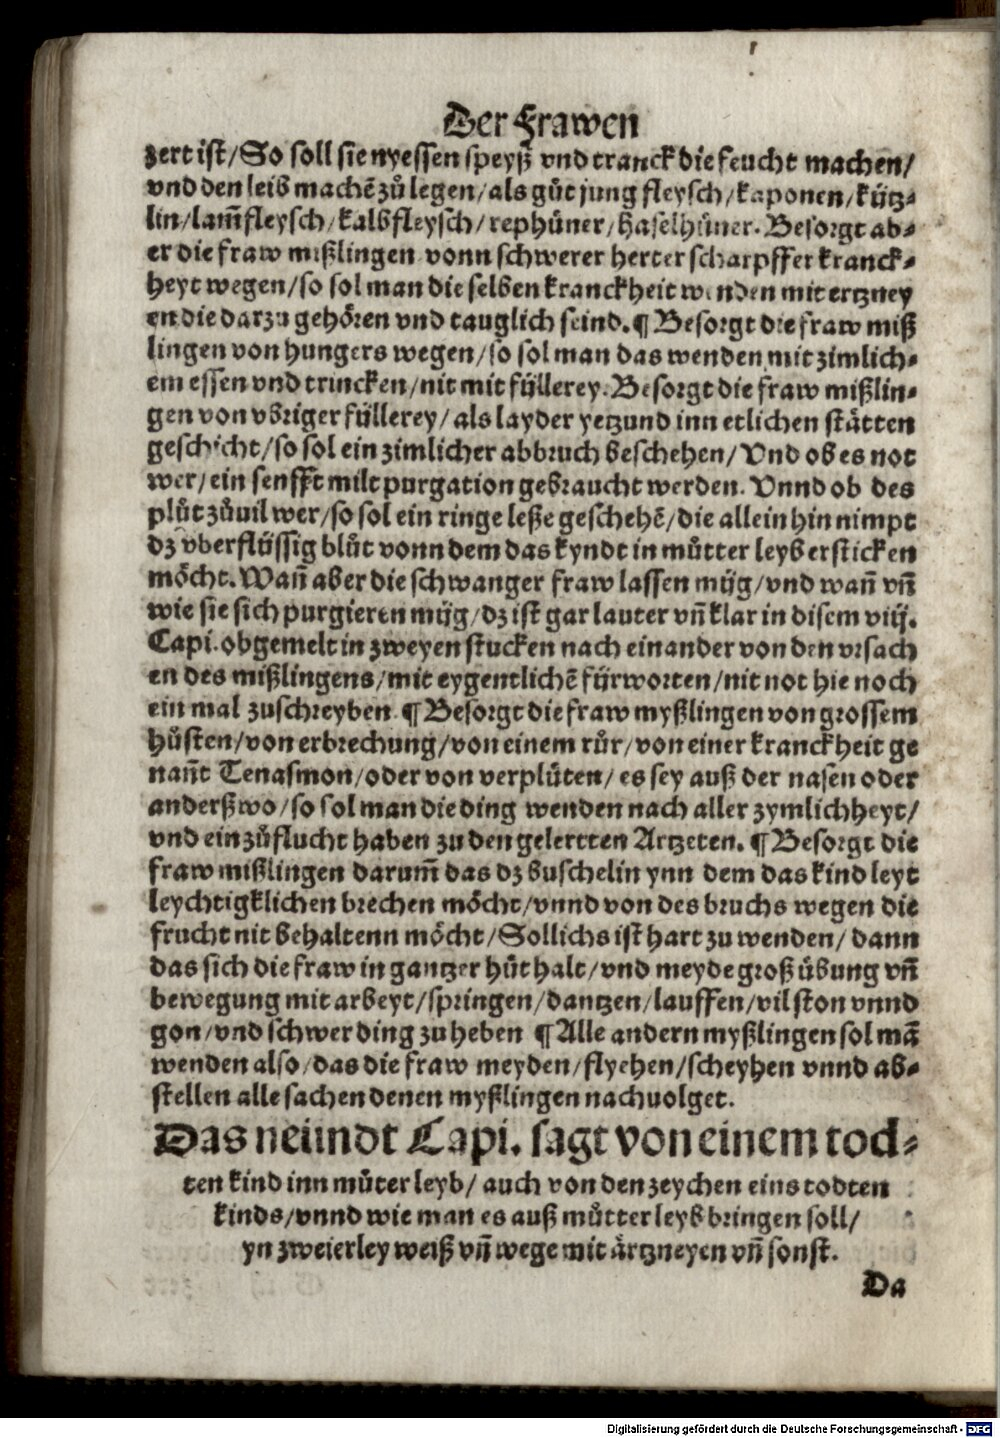 Der Frawen
zert ist/So soll sie nyessen speyß vnd tranck die feucht machen/
vnd den leib machē zů legen/als gůt jung fleysch/kaponen/kütz-
lin/lam̄fleysch/kalbfleysch/rephüner/haselhüner. Besorgt ab-
er die fraw mißlingen vonn schwerer herter scharpffer kranck-
heyt wegen/so sol man die selben kranckheit wenden mit ertzney
en die darzu gehören vnd tauglich seind.¶ Besorgt die fraw miß
lingen von hungers wegen/so sol man das wenden mit zimlich-
em essen vnd trincken/nit mit füllerey. Besorgt die fraw mißlin-
gen von vbriger füllerey/als layder yetzund inn etlichen stätten
geschicht/so sol ein zimlicher abbruch beschehen/Vnd ob es not
wer/ein senfft milt purgation gebraucht werden. Vnnd ob des
plůt zůuil wer/so sol ein ringe leße geschehē/die allein hin nimpt
dz vberflüssig blůt vonn dem das kyndt in můtter leyb ersticken
möcht. Wañ aber die schwanger fraw lassen müg/vnd wañ vñ
wie sie sich purgieren müg/dz ist gar lauter vñ klar in disem viij.
Capi. obgemelt in zweyen stucken nach einander von den vrsach
en des mißlingens/mit eygentlichē fürworten/nit not hie noch
ein mal zuschreyben. ¶ Besorgt die fraw myßlingen von grossem
hůsten/von erbrechung/von einem růr/von einer kranckheit ge
nañt Tenasmon/oder von verplůten/es sey auß der nasen oder
anderßwo/so sol man die ding wenden nach aller zymlichheyt/
vnd ein zůflucht haben zu den gelertten Artzeten. ¶ Besorgt die
fraw mißlingen darum̄ das dz buschelin ynn dem das kind leyt
leychtigklichen brechen möcht/vnnd von des bruchs wegen die
frucht nit behaltenn möcht/Sollichs ist hart zu wenden/dann
das sich die fraw in gantzer hůt halt/vnd meyde groß übung vñ
bewegung mit arbeyt/springen/dantzen/lauffen/vil ston vnnd
gon/vnd schwer ding zu heben ¶ Alle andern myßlingen sol mā
wenden also/das die fraw meyden/flyehen/scheyhen vnnd ab-
stellen alle sachen denen myßlingen nachuolget.
Das neündt Capi. sagt von einem tod-
ten kind inn můter leyb/auch von den zeychen eins todten
kinds/vnnd wie man es auß můtter leyb bringen soll/
yn zweierley weiß vñ wege mit ärtzneyen vñ sonst.
Da
Digitalisierung gefördert durch die Deutsche Forschungsgemeinschaft - DFG